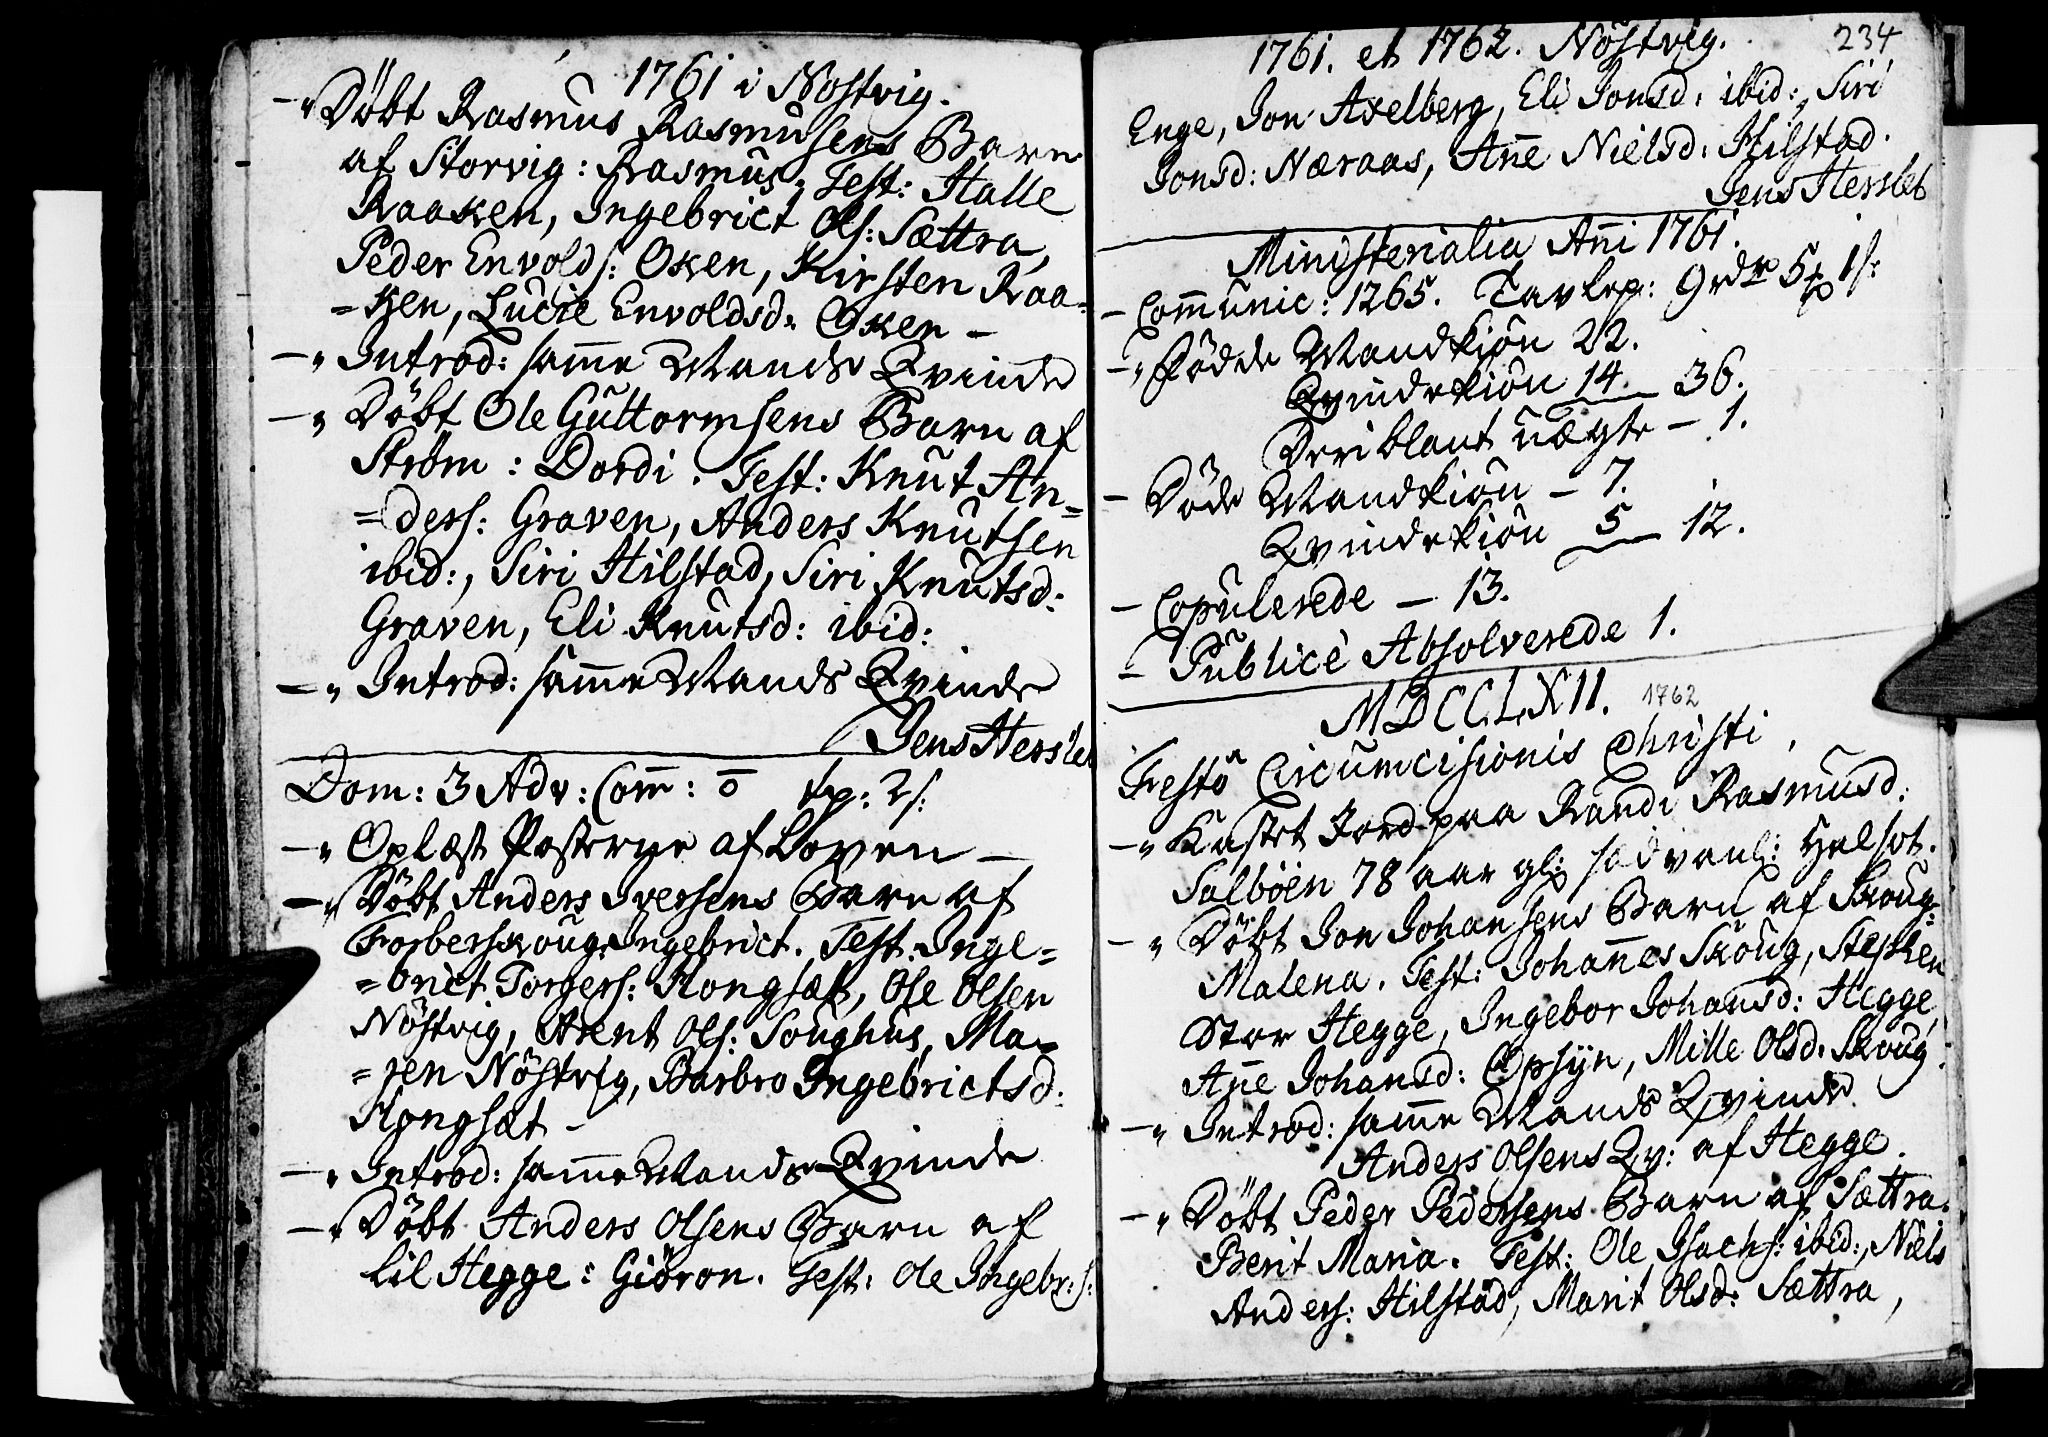 1761 i Nöstvig.
—„ Döbt Rasmus Rasmusens Barn
af Storvig: Rasmus. Test: Halle
Raaken, Ingebrict Ols: Sættra,
Peder Envolds: Oxen, Kirsten Raa-
=ken, Lucie Envoldsd: Oxen —
—„ Introd: samme Mands Qvinde
—„ Döbt Ole Guttormsens Barn af
Strøm: Dordi. Test: Knut An-
=ders: Graven, Anders Knutsen
ibid:, Siri Hilstad, Siri Knutsd:
Graven, Eli Knutsd: ibid:
—„ Introd: samme Mands Qvinde
Jens Hersleb
Dom: 3 Adv: Com̄: ō tp: 2 s:
—„ Oplæst Posterne af Loven —
—„ Döbt Anders Iversens Barn af
Forberskoug: Ingebrict. Test: Inge-
=brict Torgers: Kongsæt, Ole Olsen
Nöstvig, Arent Ols: Soughus, Ma-
=ren Nöstvig, Barbro Ingebrictsd:
Kongsæt —
—„ Introd: samme Mands Qvinde
—„ Döbt Anders Olsens Barn af
lil Hegge: Giöron. Test: Ole Ingebr: s:
1761. et 1762. Nöstvig. 234
Enge, Jon Axelberg, Eli Jonsd: ibid:, Siri
Jonsd: Næraas, An̄e Nielsd: Hilstad.
Jens Hersleb
Ministerialia An̄i 1761.
— Com̄unic: 1265. Tavlep: 9 rdr 5 ⅌ 1 s:
—„ Födde Mandkiön 22.
Qvindekiön 14. — 36.
Deriblant uægte — 1.
— Döde Mandkiön — 7.
Qvindekiön 5 — 12.
— Copulerede — 13.
— Publicè Absolverede 1.
MDCCLXII. 1762
Festo Circumcisionis Christi,
—„ Kastet Jord paa Randi Rasmusd:
Solböen 78 aar gl: sædvanl: Helsot.
—„ Döbt Jon Johansens Barn af Skoug:
Malena. Test: Johan̄es Skoug, Steffen
Stor Hegge, Ingebor Johansd: Hegge,
An̄e Johansd: Opsÿn, Mille Olsd: Skoug.
—„ Introd: samme Mands Qvinde
Anders Olsens Qv: af Hegge.
—„ Döbt Peder Pedersens Barn af Sættra.
Berit Maria. Test: Ole Isachs: ibid:, Niels
Anders: Hilstad, Marit Olsd: Sættra,